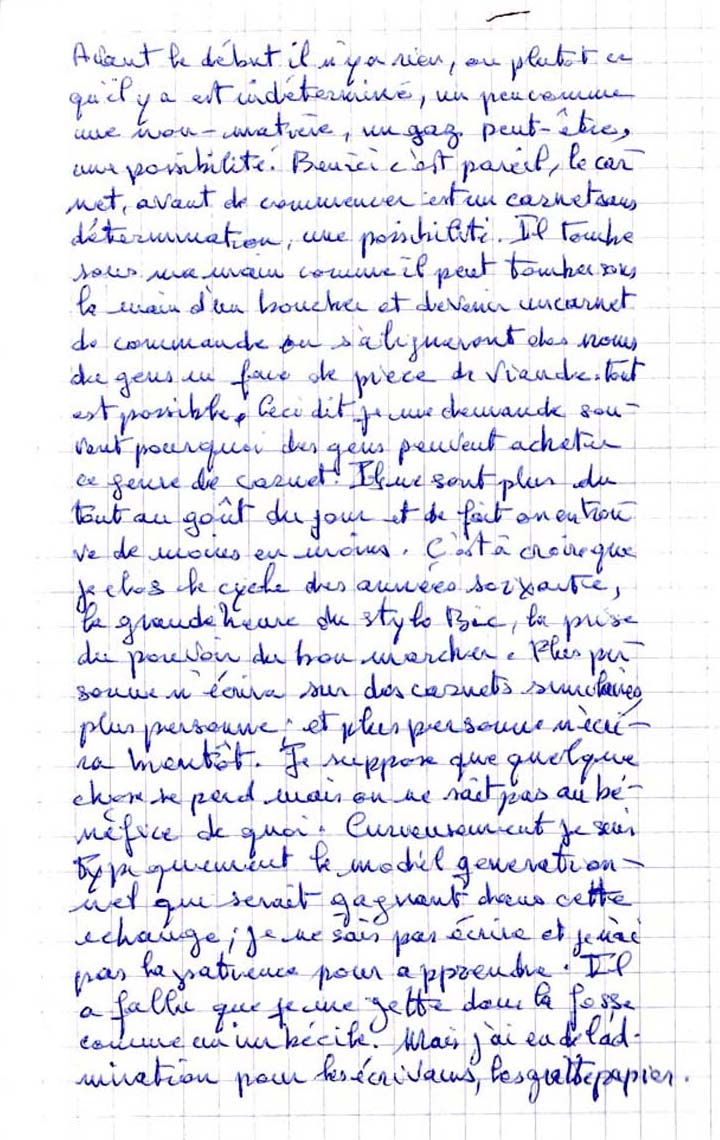 Avant le début il n'y a rien, ou plutôt ce
qu'il y a est indéterminé, un peu comme
une non-matière, un gaz peut-être,
une possibilité. Ben ici c'est pareil, le car
net, avant de commencer est un carnet sans
détermination, une possibilité. Il tombe
sous ma main comme il peut tomber sous
la main d'un boucher et devenir un carnet
de commande ou s'aligneront des noms
de gens en face de pièce de viande. tout
est possible. Ceci dit je me demande sou-
vent pourquoi des gens peuvent acheter
ce genre de carnet. Ils ne sont plus du
tout au goût du jour et de fait on en trou
ve de moins en moins. C'est à croire que
je clos le cycle des années soixante,
la grande heure du stylo Bic, la prise
du pouvoir du bon marcher. Plus per
sonne n'écrira sur des carnets similaires,
plus personne; et plus personne n'écri-
ra bientôt. Je suppose que quelque
chose se perd mais on ne sait pas au bé-
néfice de quoi. Curieusement je suis
typiquement le modèl generation-
nel qui serait gagnant dans cette
echange; je ne sais pas écrire et je n'ai
pas la patience pour apprendre. Il
a fallu que je me jette dans la fosse
comme un imbécile. Mais j'ai eu de l'ad-
miration pour les écrivains, les grattepapier.